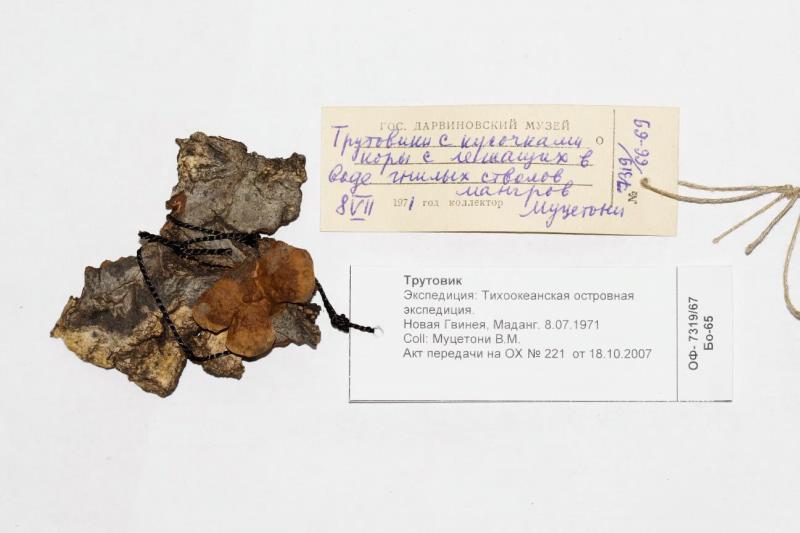 ГОС. ДАРВИНОВСКИЙ МУЗЕЙ
Трутовики с кусочками
коры с лежащих в
воде гнилых стволов
мангров
8 VII 1971 год коллектор Муцетони
№ 7319/66-69
Трутовик
Экспедиция: Тихоокеанская островная
экспедиция.
Новая Гвинея, Маданг. 8.07.1971
Coll: Муцетони В.М.
Акт передачи на ОХ № 221 от 18.10.2007
ОФ- 7319/67
Бо-65